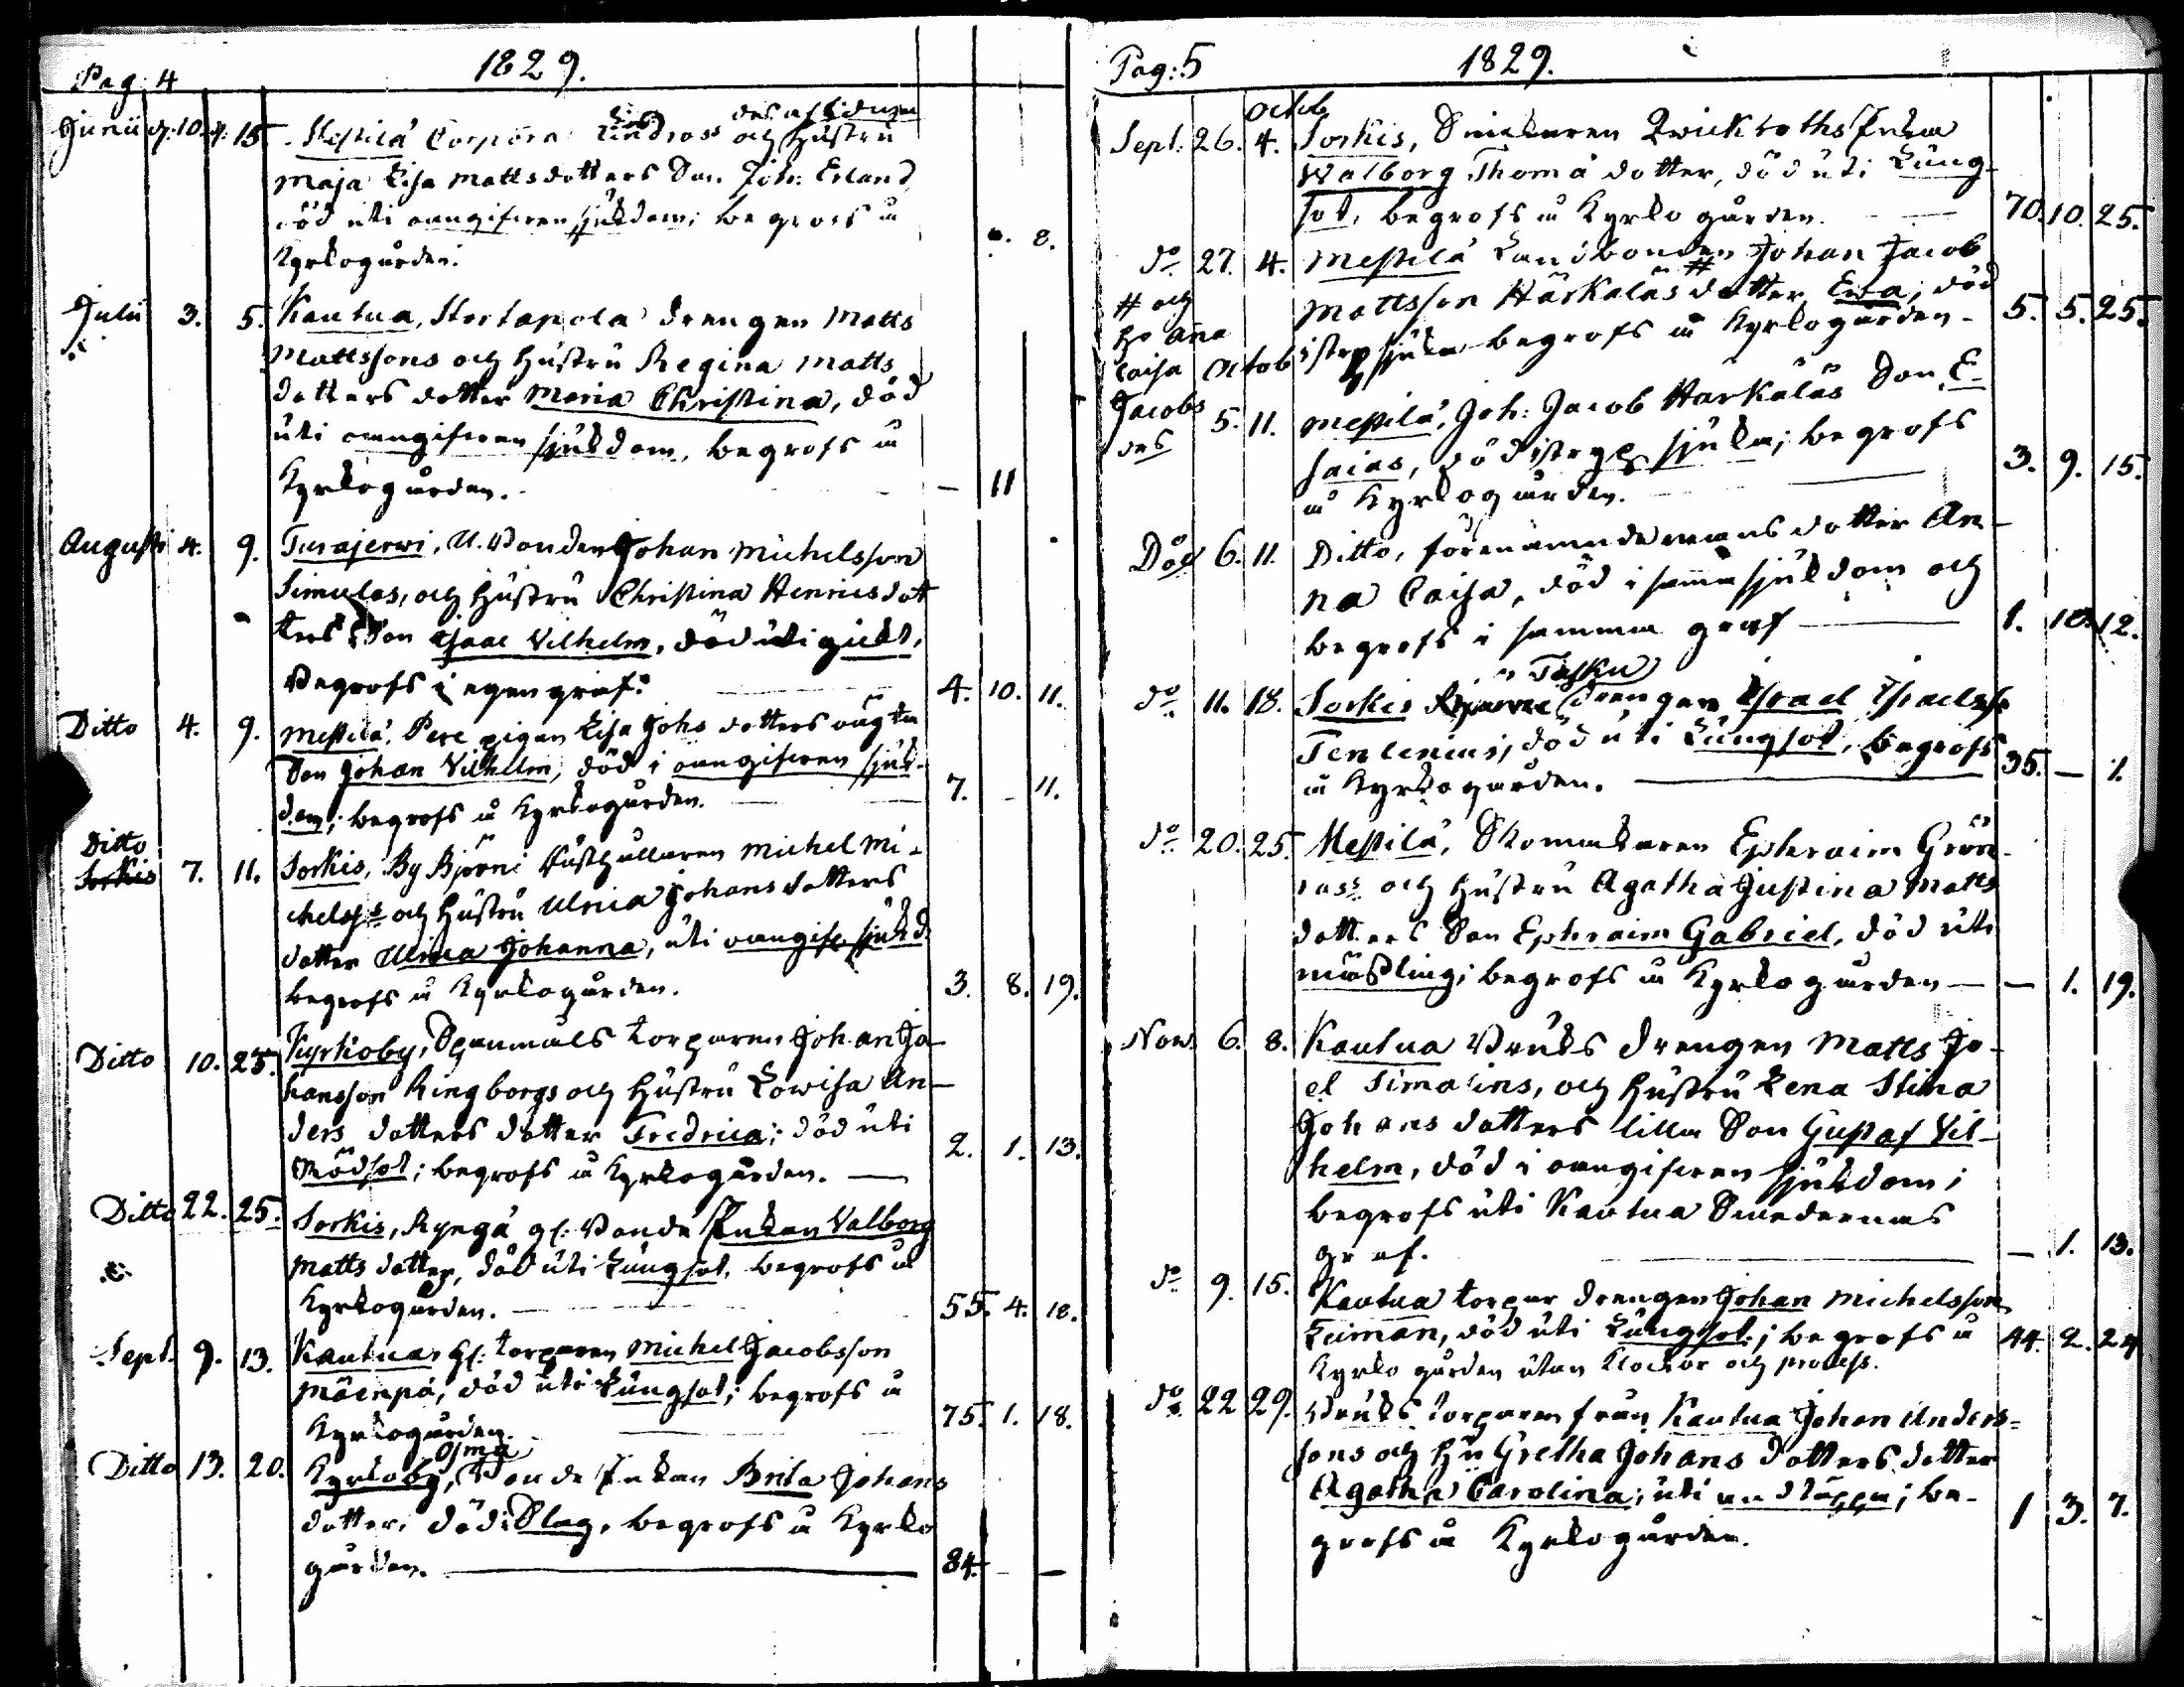 Pag: 4 1829.
Junii d. 10. d. 15. Mestilä Torparn Lindross och Hustru
Maja Lisa Mattsdotters Son Joh: Erland
död uti oangifwen sjukdom; begrofs å
Kyrkogården. 8.
Julii 3. 5. Kautua, Stortapola drengen Matts
Mattssons och Hustru Regina Matts
dotters dotter Maria Christina, död
uti oangifwen sjukdom, begrofs å
Kyrkogården. — 11
Augusti 4. 9. Turajerwi, U. Bonden Johan Michelsson
Simulas, och Hustru Christina Henricsdot
ters Son Isaac Vilhelm, död uti gickt,
begrofs i egen graf. 4. 10. 11.
Ditto 4. 9. Mestilä, Pere pigan Lisa Johs dotters oägta
Son Johan Vilhelm, död i oangifwen sjuk-
dom; begrofs å Kyrkogården. 7. — 11.
Ditto
Sorkis 7. 11. Sorkis, By Björni Rusthållaren Michel Mi-
chelss:s och Hustru Ulrica Johans dotters
dotter Ulrica Johanna, uti oangifw. sjukd.
begrofs å Kyrkogården. 3. 8. 19.
Ditto 10. 25. Kyrkoby, Spanmåls torparen Johan Jo-
hansson Ringborgs och Hustru Lowisa An-
ders dotters dotter Fredrica; död uti
Rödsot; begrofs å Kyrkogården. — 2. 1. 13.
Ditto 22. 25. Sorkis, Ryngä gl: Bonde Enkan Valborg
Matts dotter, död uti Lungsot, begrofs å
Kyrkogården. — 55. 4. 18.
Sept. 9. 13. Kautua, gl: torparen Michel Jacobsson
Mäenpä, död uti Lungsot; begrofs å
Kyrkogården. 75. 1. 18.
Ojma
Ditto 13. 20. Kyrkoby, Bonde Enkan Brita Johans
dotter, död i Slag, begrofs å Kyrko
gården. — 84. — —
Pag: 5 1829.
Octob
Sept. 26. 4. Sorkis, Snickaren Qwickroths Enka
Walborg Thomä dotter, död uti Lung-
sot, begrofs å Kyrko gården. 70. 10. 25.
do 27. 4. Mestilä Landbonden Johan Jacob
# och
Mattsson Härkäläs # dotter, Eva, död
ho Anna
i strypsjuka begrofs å Kyrkogården - 5. 5. 25.
Caisa Octob
Jacobs
drs
5. 11. Mestilä, Joh: Jacob Härkäläs Son E-
saias, död i stryp sjuka; begrofs
å Kyrkogården. — 3. 9. 15.
Do 6. 11. Ditto, förenämnde mans dotter An-
na Caisa, död i samma sjukdom och
begrofs i samma graf — 1. 10. 12.
Tasku
do 11. 18. Sorkis drengen Israel Israelss:
Tenlenius, död uti Lungsot, begrofs
å Kyrkogården. — 35. — 1.
do 20. 25. Mestilä, Skomakaren Ephraim Grön-
roos:s och Hustru Agatha Justina Matts
dotters Son Ephraim Gabriel, död uti
mässling; begrofs å Kyrkogården — — 1. 19.
Nov. 6. 8. Kautua Bruks drengen Matts Jo-
el Simolins, och Hustru Lena Stina
Johans dotters lilla Son Gustaf Vil-
helm, död i oangifwen sjukdom;
begrofs uti Kautua Smedernas
graf. — — 1. 13.
do 9. 15. Kautua torpar drengen Johan Michelsson
Leiman, död uti Lungsot; begrofs å 44. 2. 24.
Kyrko gården utan Klockor och process.
do 22 29. Bruks torparen från Kautua Johan Anders-
sons och Hu Gretha Johans dotters dotter
Agatha Carolina; uti andtäppa; be-
grofs å Kyrkogården. 1 3. 7.